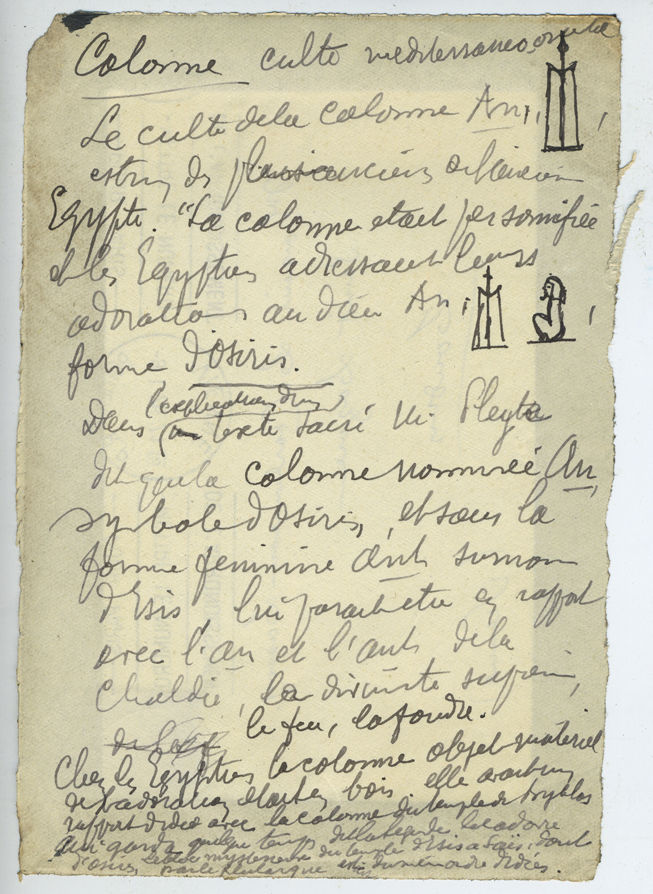 Colonne culto mediterraneo
Le culte de la colonne An,
est un des anciens
Egypte. "La colonne etait personnifiée
et les Egyptiens adressaient leurs
adorations au dieu An,
forme d'Osiris.
l'explication d'un
Dans texte sacré M. Pleyte
dit que la colonne nommée An,
symbole d'Osiris, et sous la
forme feminine d'Ant surnom
d'Isis, lui parait etre en rapport
avec l'An et l'Anti de la
Chaldée, la divinite
le feu, la foudre.
Chez les Egyptiens la colonne objet materiel
de l'adoration etait en bois, elle avait un
rapport d'idée avec la colonne du temple de Byblos
qui garda quelque temps
d'Osiris. mysterieuse du temple d'Isis a Sais, dont
parle Plutarque du meme ordre d'idées.